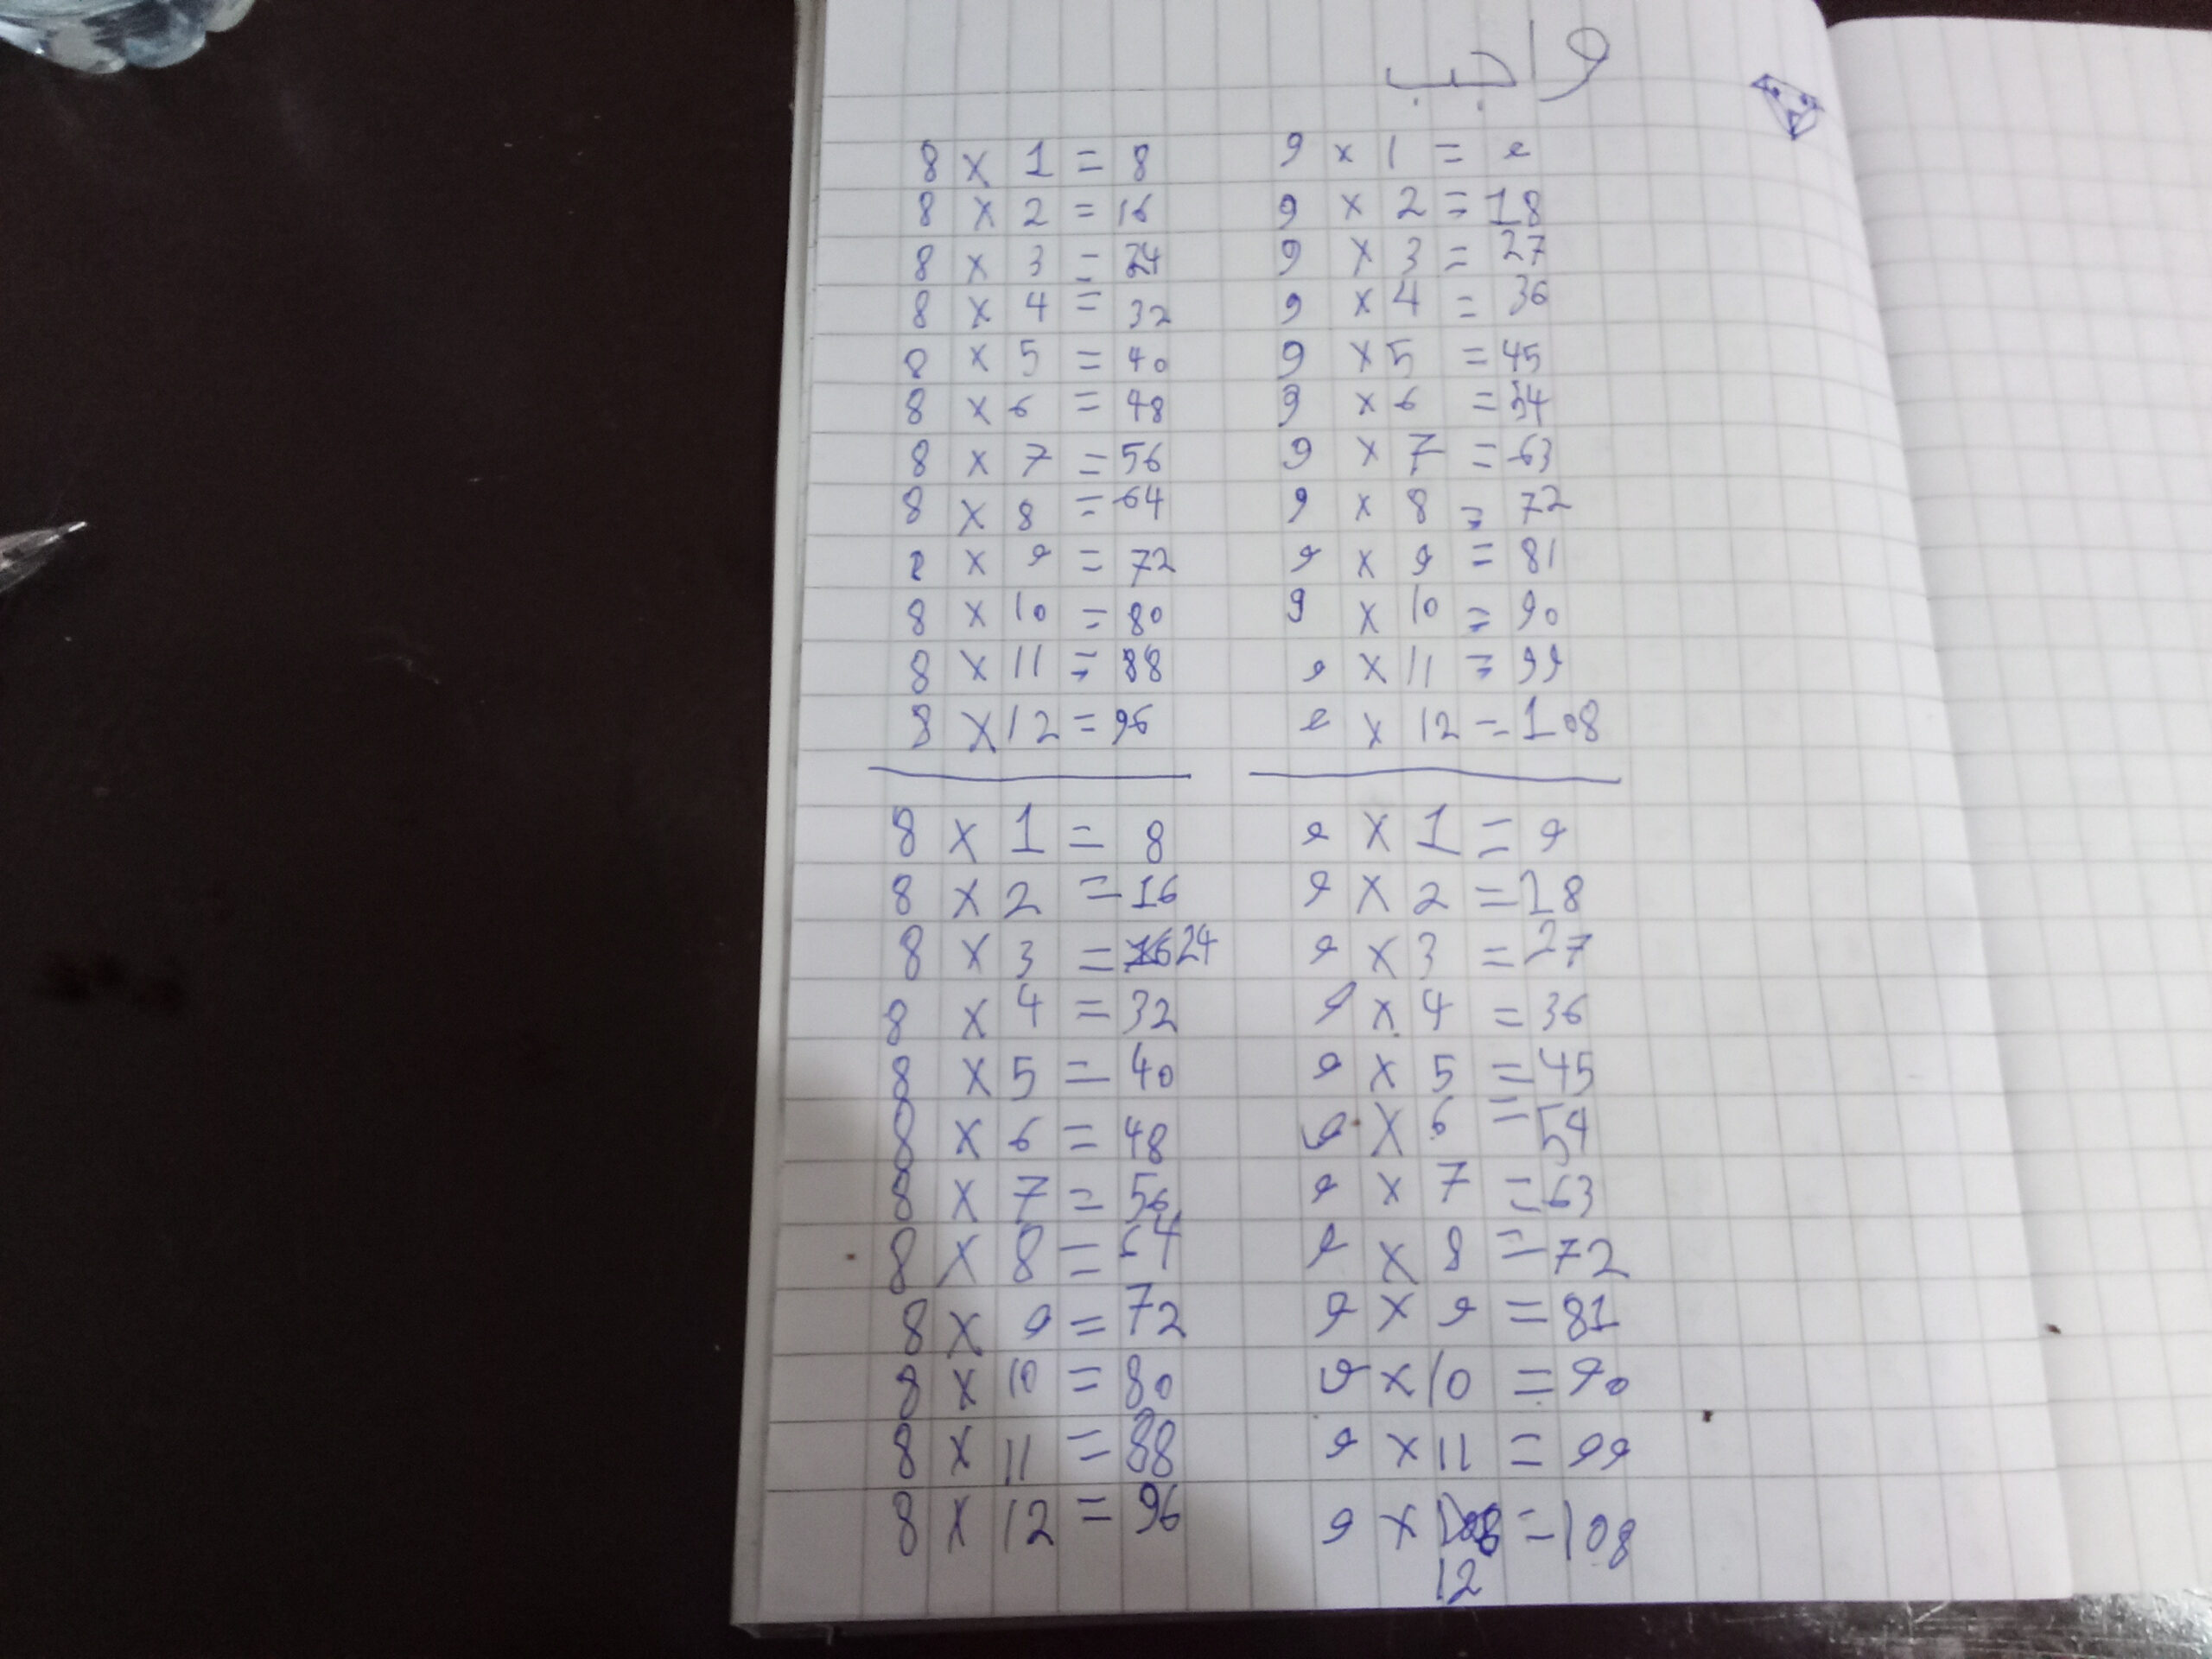 واجب
8 x 1 = 8 9 x 1 = 9
8 x 2 = 16 9 x 2 = 18
8 x 3 = 24 9 x 3 = 27
8 x 4 = 32 9 x 4 = 36
8 x 5 = 40 9 x 5 = 45
8 x 6 = 48 9 x 6 = 54
8 x 7 = 56 9 x 7 = 63
8 x 8 = 64 9 x 8 = 72
8 x 9 = 72 9 x 9 = 81
8 x 10 = 80 9 x 10 = 90
8 x 11 = 88 9 x 11 = 99
8 x 12 = 96 9 x 12 = 108
8 x 1 = 8 9 x 1 = 9
8 x 2 = 16 9 x 2 = 18
8 x 3 = 24 9 x 3 = 27
8 x 4 = 32 9 x 4 = 36
8 x 5 = 40 9 x 5 = 45
8 x 6 = 48 9 x 6 = 54
8 x 7 = 56 9 x 7 = 63
8 x 8 = 64 9 x 8 = 72
8 x 9 = 72 9 x 9 = 81
8 x 10 = 80 9 x 10 = 90
8 x 11 = 88 9 x 11 = 99
8 x 12 = 96 9 x = 108
12